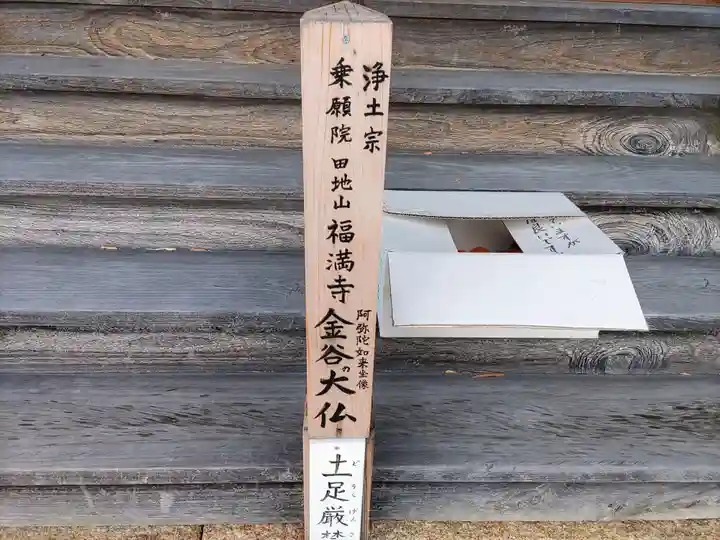 浄土宗
乗願院 田地山 福満寺
阿弥陀如来坐像
金谷の大仏
土足厳禁
どそくげん